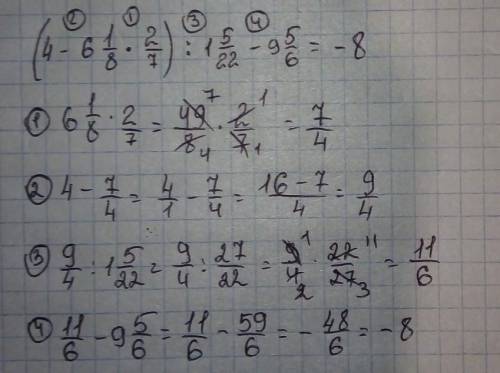 ② ① ③ ④
(4 - 6 1/8 · 2/7) : 1 5/22 - 9 5/6 = -8
① 6 1/8 · 2/7 = 49 7/8 4 · 2 1/7 1 = 7/4
② 4 - 7/4 = 4/1 - 7/4 = 16-7/4 = 9/4
③ 9/4 : 1 5/22 = 9/4 : 27/22 = 9 1/4 2 · 22 11/27 3 = 11/6
④ 11/6 - 9 5/6 = 11/6 - 59/6 = - 48/6 = -8